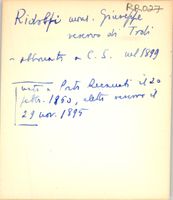 RR027
Ridolfi mons. Giuseppe
vescovo di Todi
- abbonato a C. S. nel 1899
nato a Porto Recanati il 20
febbr. 1860, eletto vescovo il
29 nov. 1895